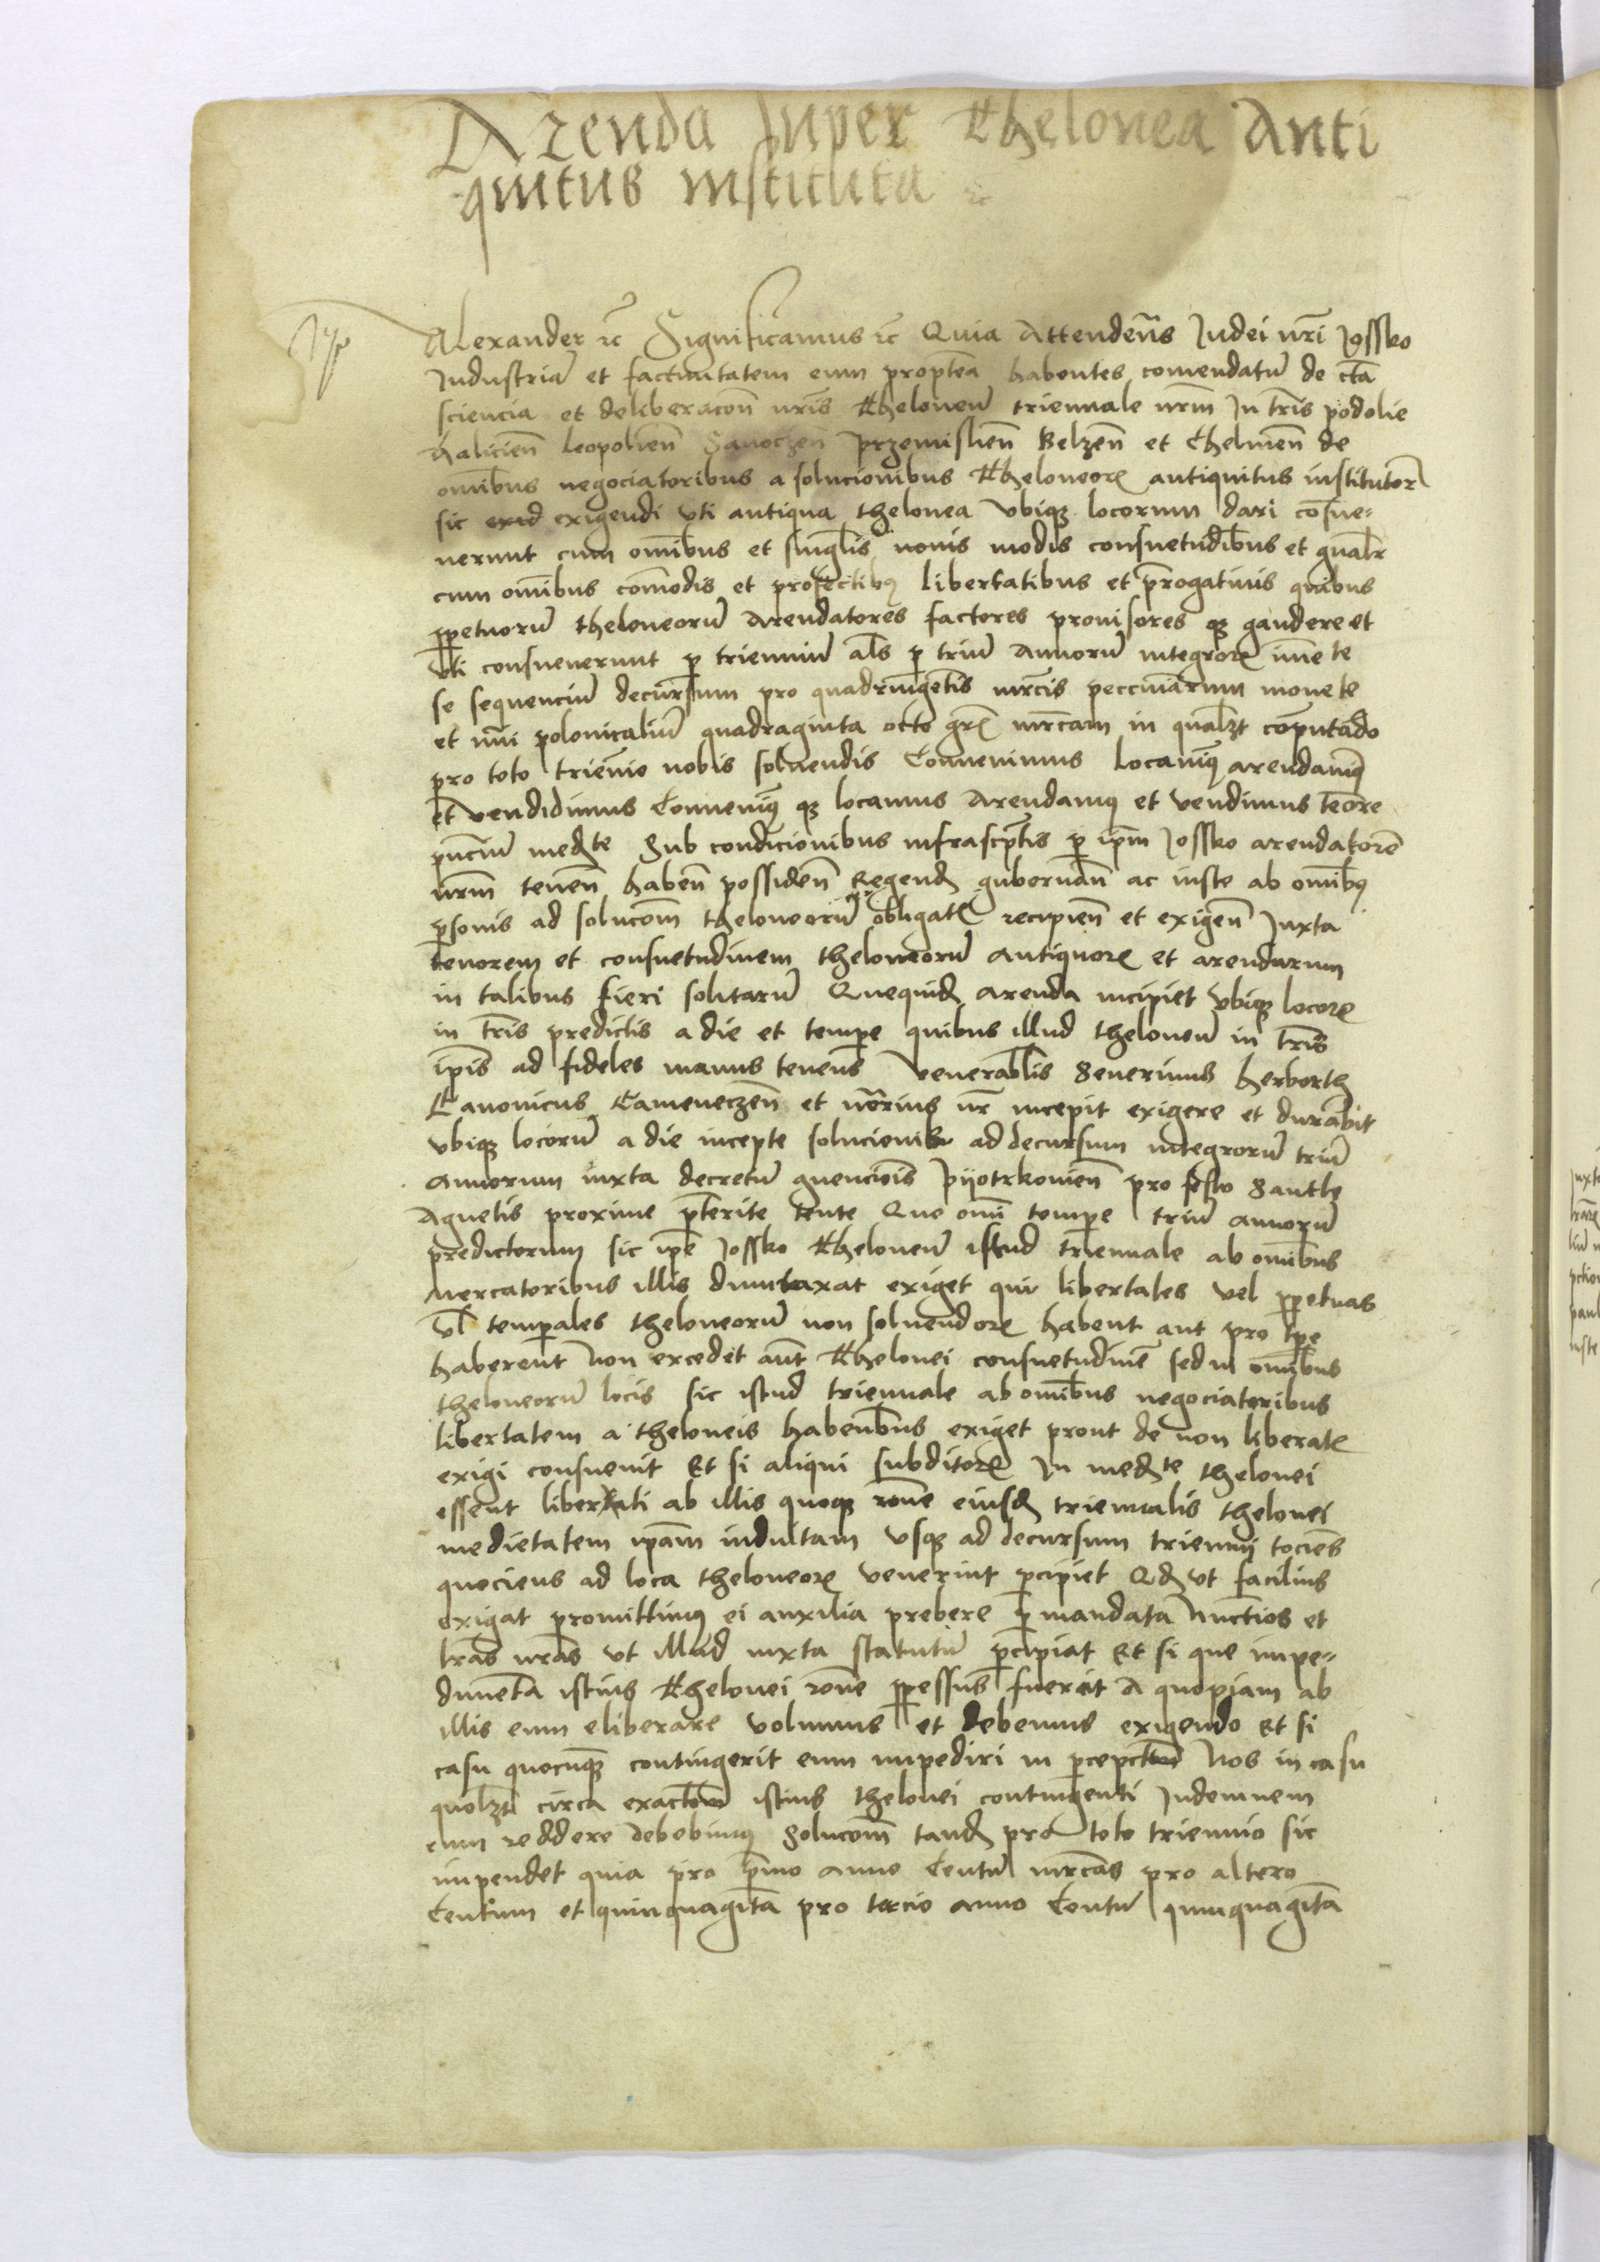 Arenda super Thelonea Anti
quitus instituta ꝛc
Alexander ꝛc Significamus ꝛc Quia Attenden̄s Judei nr̄i Jossko
Industriā et factiuitatem eum propt̄ea habentes comendatū de cta
sciencia et deliberacon̄ nr̄is Theloneū triennale nr̄m In tr̄is podolie
Halicien̄ Leopolien̄ Sanoczen̄ Przemislien̄ Belzen̄ et Chelmen̄ de
om̄ibus negociatoribus a solucionibus Theloneoꝝ antiquitus institutoꝝ
sic exigendi vti antiqua thelonea vbiqꝫ locorum dari cōsue-
uerunt cum om̄ibus et singl̄is nouis modis consuetudībus et gnal̄r
cum om̄ibus com̄odis et profectibꝯ libertatibus et p̄rogatiuis quibus
ꝑpetuorū theloneorū Arendatores factores prouisores qꝫ gaudere et
vti consueuerunt ꝑ trienniū al̄s ꝑ triū Annorū integroꝝ īme te
se sequenciū decursum pro quadringentis mr̄cis peccuniarum monete
et nūi polonicaliū quadraginta octo gr̄ mr̄cam in qual̄zt cōputādo
pro toto triēnio nobis soluendis Conuenimus Locauimꝯ arendauimꝯ
et vendidimus Conuenimꝯ qꝫ locamus Arendamꝯ et vendimus teōre
pn̄ciū medte Sub condicionibus infrascp̄tis ꝑ ip̄m Jossko arendatorē
nr̄m tenen̄ haben̄ possiden̄ Regend gubernan̄ ac iuste ab om̄ibꝯ
ꝑsonis ad solucōm theloneorū obligatꝭ recipien̄ et exigen̄ Juxta
tenorem et consuetudinem theloneorū Antiquoꝝ et arendarum
in talibus fieri solitarū Quequid arenda incipiet vbiqꝫ locoꝝ
in tr̄is predictis a die et tempe quibus illud theloneū in tr̄is
ip̄is ad fideles manus tenens Venerabl̄is Seuerinus Herborth
Canonicus Cameneczen̄ et notarius nr̄ incepit exigere et durabit
vbiqꝫ locorū a die incepte solucionis ad decursum integrorū triū
Annorum iuxta decretū guencionis Pyotrkouien̄ pro festo Sancte
Agnetis proxime p̄terite tente Quo om̄i tempe triū annorū
predictorum sic ip̄e Jossko Theloneū istud triennale ab omibus
Mercatoribus illis dumtaxat exiget qui libertates vel ꝑpetuas
vl̄ temp̄ales theloneorū non soluendoꝝ habent aut pro tp̄e
haberent Non excedet aūt Thelonei consuetudinē sed in om̄ibus
theloneorū locis sic istud triennale ab om̄ibus negociatoribus
libertatem a theloneis habentibus exiget prout de non liberatꝭ
exigi consueuit Et si aliqui subditoꝝ In medte thelonei
essent libertati ab illis quoqꝫ rōne eiusd triennalis thelonei
medietatem ip̄am indultam vsqꝫ ad decursum triennij tociens
quociens ad loca theloneoꝝ venerint ꝑcipiet Qd vt facilius
exigat promittimꝯ ei auxilia prebere ꝑ mandata Nuncios et
lr̄as nr̄as vt illud iuxta statutū ꝑcipiat Et si que impe-
dimenta istius Thelonei rōne ꝑpessus fuerit A quopiam ab
illis eum eliberare volumus et debemus exigendo Et si
casu quocunqꝫ contingerit eum impediri in ꝑcepctione Nos in casu
quolzti circa exactiōem istius thelonei contingenti Indemnem
eum reddere debebimꝯ Solucōm tand pro toto triennio sic
impendet quia pro p̄mo anno Centū mr̄cas pro altero
Centum et quinquaginta pro tercio anno Centū quinquaginta